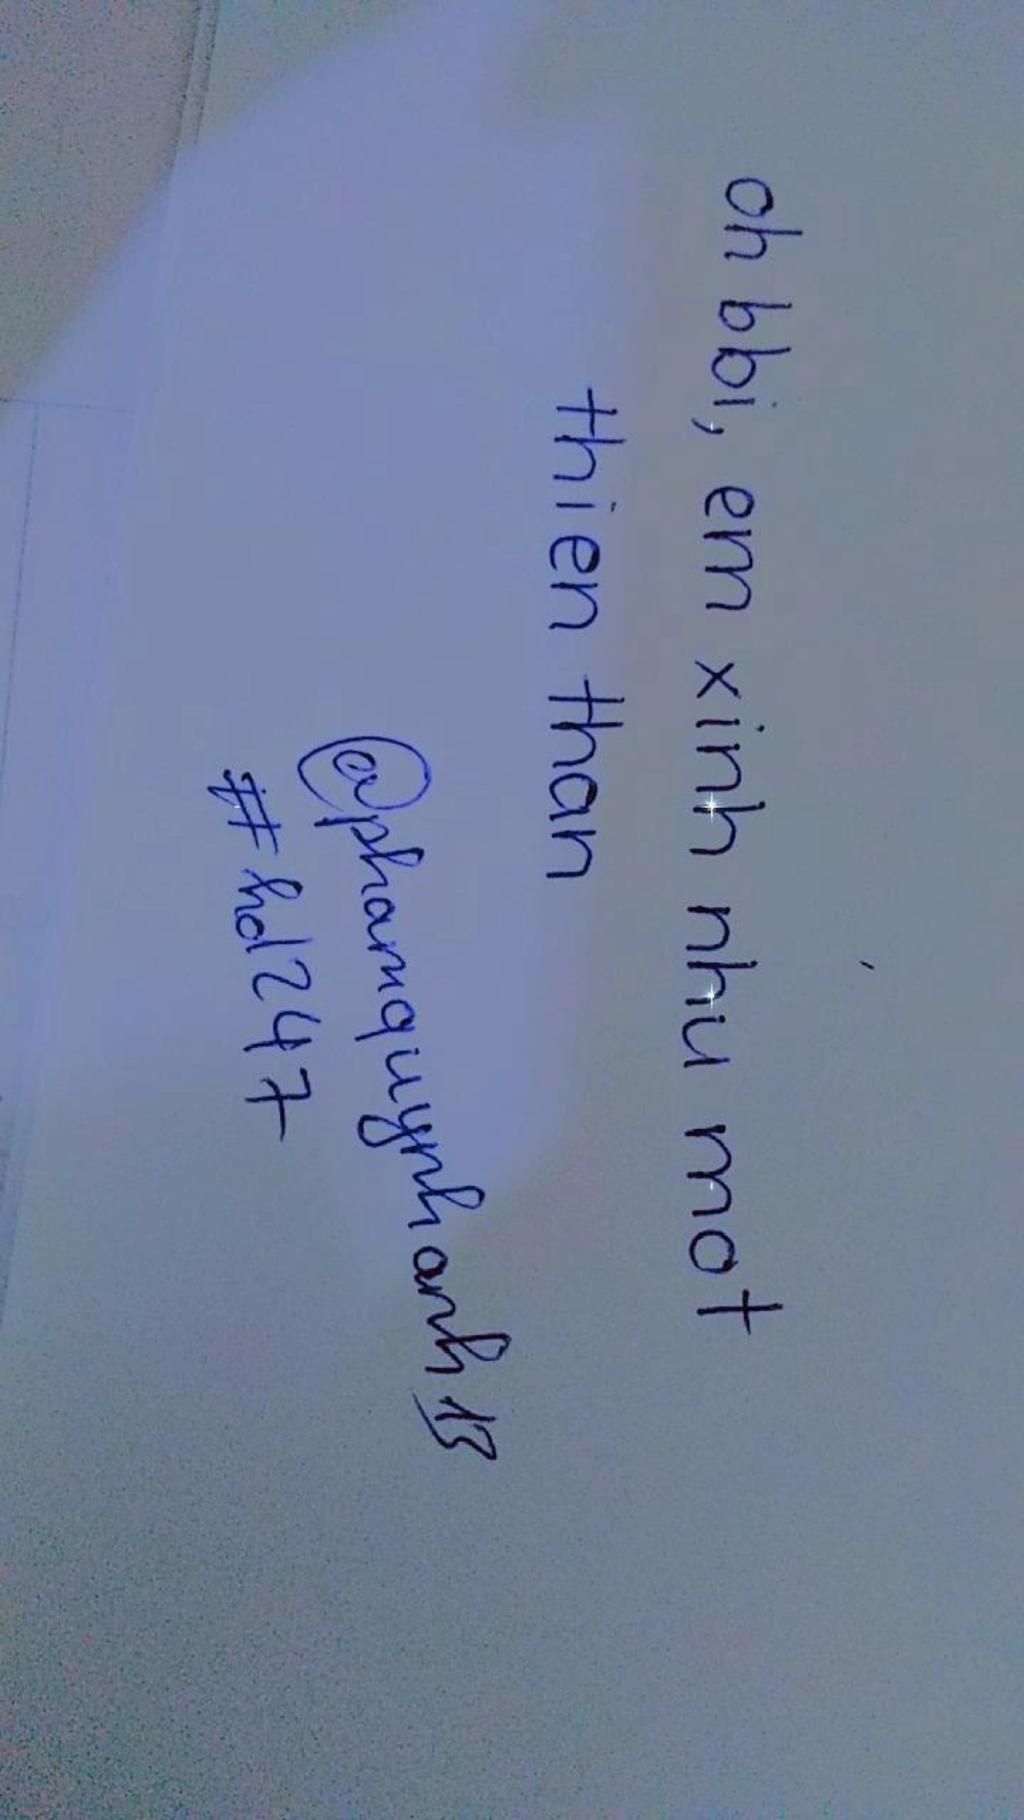 oh bbi, em xinh nhu mot
thien than
@phamquynhanh13
#hd247